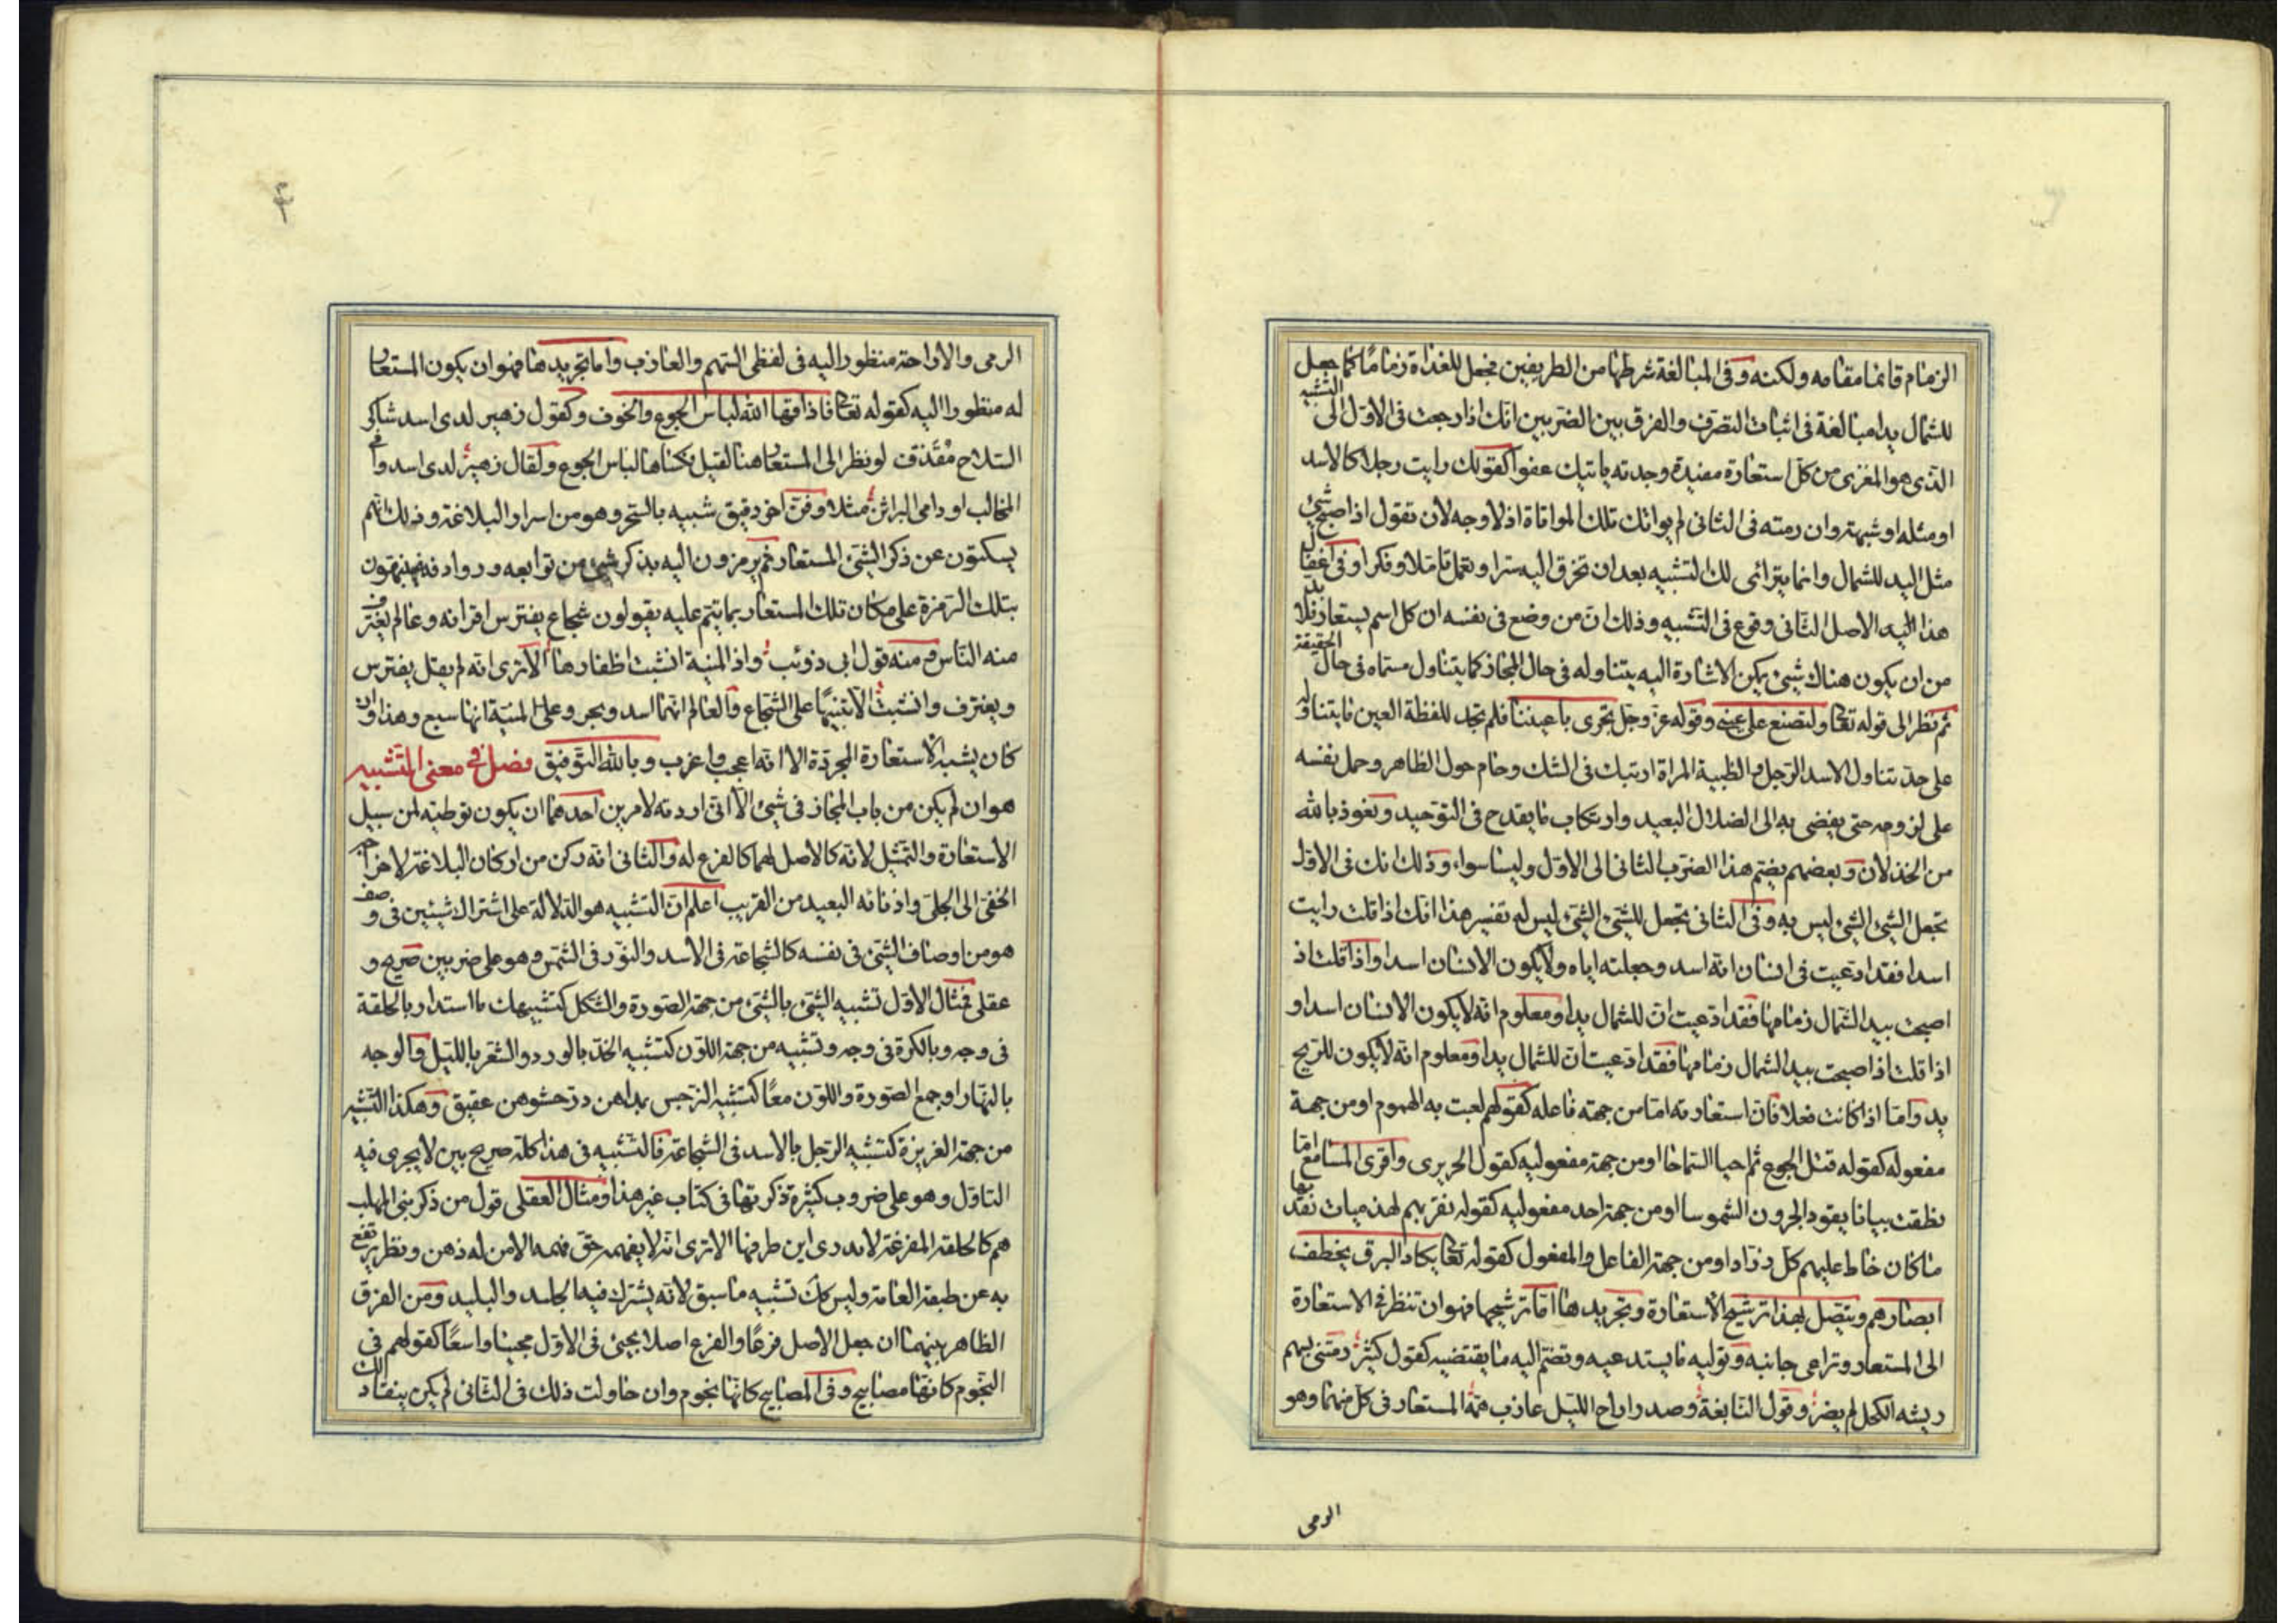 الزمام قائما مقامه ولكنه وفى المبالغة شرطها من الطريفين فجعل للغداة زماما كما جعل
للشمال يدا مبالغة فى اثبات التصرف والفرق بين الضربين انك اذا رجعت فى الاول الى التشبيه
الذى هو المغزى من كل استعارة مفيدة وجدته ياتيك عفوا كقولك رايت رجلا كالاسد
او مثله او شبهته وان رمته فى الثانى لم يواتك تلك المواتاة اذ لا وجه لان تقول اذ اصبح شئ
مثل اليد للشمال وانما يترائى لك التشبيه بعد ان تخرق اليه سترا وتعمل تاملا وفكرا وفى اغفال
هذا اليد الاصل الثانى وقوع فى التشبيه وذلك ان من وضع فى نفسه ان كل اسم يستعار فلا بد
من ان يكون هناك شيئ يمكن الاشارة اليه يتناوله فى حال المجاز كما يتناول مسماه فى حال الحقيقة
ثم نظر الى قوله تعالى ولتصنع على عينى وقوله عز وجل تجرى باعيننا فلم يجد للفظة العين ما يتناوله
على حد تناول الاسد الرجل والظبية المراة ارتبك فى الشك وحام حول الظاهر وحمل نفسه
على لزومه حتى يفضى به الى الضلال البعيد وارتكاب ما يقدح فى التوحيد ونعوذ بالله
من الخذلان وبعضهم يضم هذا الضرب الثانى الى الاول وليسا سواء وذلك انك فى الاول
تجعل الشيئ الشيئ ليس به وفى الثانى تجعل للشيئ الشيئ ليس له تفسير هذا انك اذا قلت رايت
اسدا فقد ادعيت فى انسان انه اسد وجعلته اياه ولا يكون الانسان اسدا واذا قلت اذ
اصبحت بيد الشمال زمامها فقد ادعيت ان للشمال يدا ومعلوم انه لا يكون الانسان اسدا و
اذا قلت اذ اصبحت بيد الشمال زمامها فقد ادعيت ان للشمال يدا ومعلوم انه لا يكون للريح
يد واما اذا كانت فعلا فان استعارته اما من جهة فاعله كقولهم لعبت به الهموم او من جهة
مفعوله كقوله قتل الجوع ثم احيا السماحا او من جهة مفعوليه كقول الحريرى واقرى المسامع اما
نطقت بيانا يقود الحرون الشموسا او من جهة احد مفعوليه كقوله نقريهم لهذميات نقد بها
ما كان خاط عليهم كل ذراد او من جهة الفاعل والمفعول كقوله تعالى يكاد البرق يخطف
ابصارهم ويتصل بهذا ترشيح الاستعارة وتجريدها اما ترشيحها فهو ان تنظر فى الاستعارة
الى المستعار وتراعى جانبه وتوليه ما يستدعيه وتضم اليه ما يقتضيه كقول كثير رمتنى بسهم
ريشه الكحل لم يضر وقول النابغة وصدر اراح الليل عازب همه المستعار فى كل منهما وهو
الرمى
الرمى والاراحة منظور اليه فى لفظى السهم والعازب واما تجريدها فهو ان يكون المستعار
له منظورا اليه كقوله تعالى فاذاقها الله لباس الجوع والخوف وكقول زهير لدى اسد شاكى
السلاح مقذف لو نظر الى المستعار هنا لقيل فكساها لباس الجوع ولقال زهير لدى اسد وافى
المخالب او دامى البراثن مثلا وفن اخر دقيق شبيه بالسحر وهو من اسرار البلاغة وذلك انهم
يسكتون عن ذكر الشيئ المستعار ثم يرمزون اليه بذكر شيئ من توابعه وروادفه فينبهون
بتلك الرمزة على مكان تلك المستعار بما يتم عليه يقولون شجاع يفترس اقرانه وعالم يغترف
منه الناس ومنه قول ابى ذوئب واذ المنية انشبت اظفارها الا ترى انه لم يقل يفترس
ويغترف وانشبت الا تنبيها على الشجاع والعالم انهما اسد وبحر وعلى المنية انها سبع وهذا وان
كان يشبه الاستعارة المجردة الا انه اعجب واغرب وبالله التوفيق فصل فى معنى التشبيه
هو ان لم يكن من باب المجاز فى شيئ الا انى اردته لامرين احدهما ان يكون توطئة لمن سبيل
الاستعارة والتمثيل لانه كالاصل لهما كالفرع له والثانى انه ركن من اركان البلاغة لاخراج
الخفى الى الجلى وادنائه البعيد من القريب اعلم ان التشبيه هو الدلالة على اشتراك شيئين فى وصف
هو من اوصاف الشيئ فى نفسه كالشجاعة فى الاسد والنور فى الشمس وهو على ضربين صريح و
عقلى فمثال الاول تشبيه الشيئ بالشيئ من جهة الصورة والشكل كتشبيهك ما استدار بالحلقة
فى وجه وبالكرة فى وجه وتشبيه من جهة اللون كتشبيه الخد بالورد والشعر بالليل والوجه
بالنهار او جمع الصورة واللون معا كتشبيه النرجس بمداهن در حشوهن عقيق وهكذا التشبيه
من جهة الغريزة كتشبيه الرجل بالاسد فى الشجاعة فالتشبيه فى هذا كله صريح بين لا يجرى فيه
التاول وهو على ضروب كثيرة ذكرتها فى كتاب غير هذا ومثال العقلى قول من ذكر بنى المهلب
هم كالحلقة المفرغة لا يدرى اين طرفها الا ترى انه لا يفهمه حق فهمه الا من له ذهن ونظر يرتفع
به عن طبقة العامة وليس كك تشبيه ما سبق لانه يشترك فيه الجليد والبليد ومن الفرق
الظاهر بينهما ان جعل الاصل فرعا والفرع اصلا يجيئ فى الاول مجيئا واسعا كقولهم فى
النجوم كانها مصابيح وفى المصابيح كانها نجوم وان حاولت ذلك فى الثانى لم يكن ينقاد لك